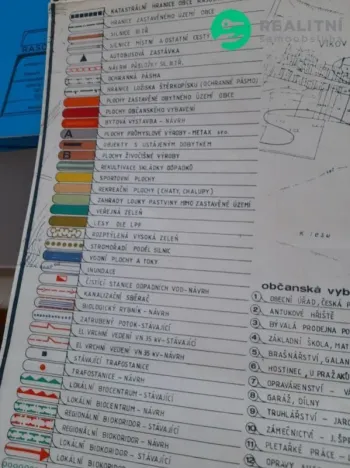 REALITNÍ
KATASTRÁLNÍ HRANICE OBCE
HRANICE ZASTAVĚNÉHO ÚZEMÍ OBCE
SILNICE
SILNICE MÍSTNÍ A OSTATNÍ CESTY
AUTOBUSOVÁ ZASTÁVKA
NÁVRH
OCHRANNÁ PÁSMA
HRANICE LOŽISKA ŠTĚRKOPÍSKU (OCHRANNÉ PÁSMO)
PLOCHY ZASTAVĚNÉ OBYTNÉHO ÚZEMÍ OBCE
PLOCHY OBČANSKÉHO VYBAVENÍ
BYTOVÁ VÝSTAVBA - NÁVRH
A PLOCHY PRŮMYSLOVÉ VÝROBY - METAX
OBJEKTY S USTÁJENÝM DOBYTKEM
B PLOCHY ŽIVOČIŠNÉ VÝROBY
REKULTIVACE SKLÁDKY ODPADKŮ
SPORTOVNÍ PLOCHY
REKREAČNÍ PLOCHY (CHATY, CHALUPY)
ZAHRADY LOUKY PASTVINY MIMO ZASTAVĚNÉ ÚZEMÍ
VEŘEJNÁ ZELEŇ
LESY DLE LPF
ROZPTÝLENÁ VYSOKÁ ZELEŇ
STROMOŘADÍ PODÉL SILNIC
VODNÍ PLOCHY A TOKY
INUNDACE
ČISTÍCÍ STANICE ODPADNÍCH VOD - NÁVRH
KANALIZAČNÍ SBĚRAČ
BIOLOGICKÝ RYBNÍK - NÁVRH
ZATRUBENÝ POTOK - STÁVAJÍCÍ
EL. VRCHNÍ VEDENÍ VN 35 KV - STÁVAJÍCÍ
EL. VRCHNÍ VEDENÍ VN 35 KV - NÁVRH
STÁVAJÍCÍ TRAFOSTANICE
TRAFOSTANICE - NÁVRH
LOKÁLNÍ BIOCENTRUM - STÁVAJÍCÍ
LOKÁLNÍ BIOCENTRUM - NÁVRH
REGIONÁLNÍ BIOKORIDOR - STÁVAJÍCÍ
REGIONÁLNÍ BIOKORIDOR - NÁVRH
LOKÁLNÍ BIOKORIDOR - STÁVAJÍCÍ
LOKÁLNÍ BIOKORIDOR - NÁVRH
občanská vyb
1 OBECNÍ ÚŘAD, ČESKÁ P
2 ANTUKOVÉ HŘIŠTĚ
3 BÝVALÁ PRODEJNA PO
4 ZÁKLADNÍ ŠKOLA, MAT
5 BRAŠNÁŘSTVÍ, GALAN
6 HOSTINEC U PRAŽÁKŮ
7 OPRAVÁRENSTVÍ - V
8 GARÁŽ, DÍLNY
9 TRUHLÁŘSTVÍ - JAR
10 ZÁMEČNICTVÍ - J. ŠP
11 PLETAŘSKÉ PRÁCE - L
12 OPRAVY